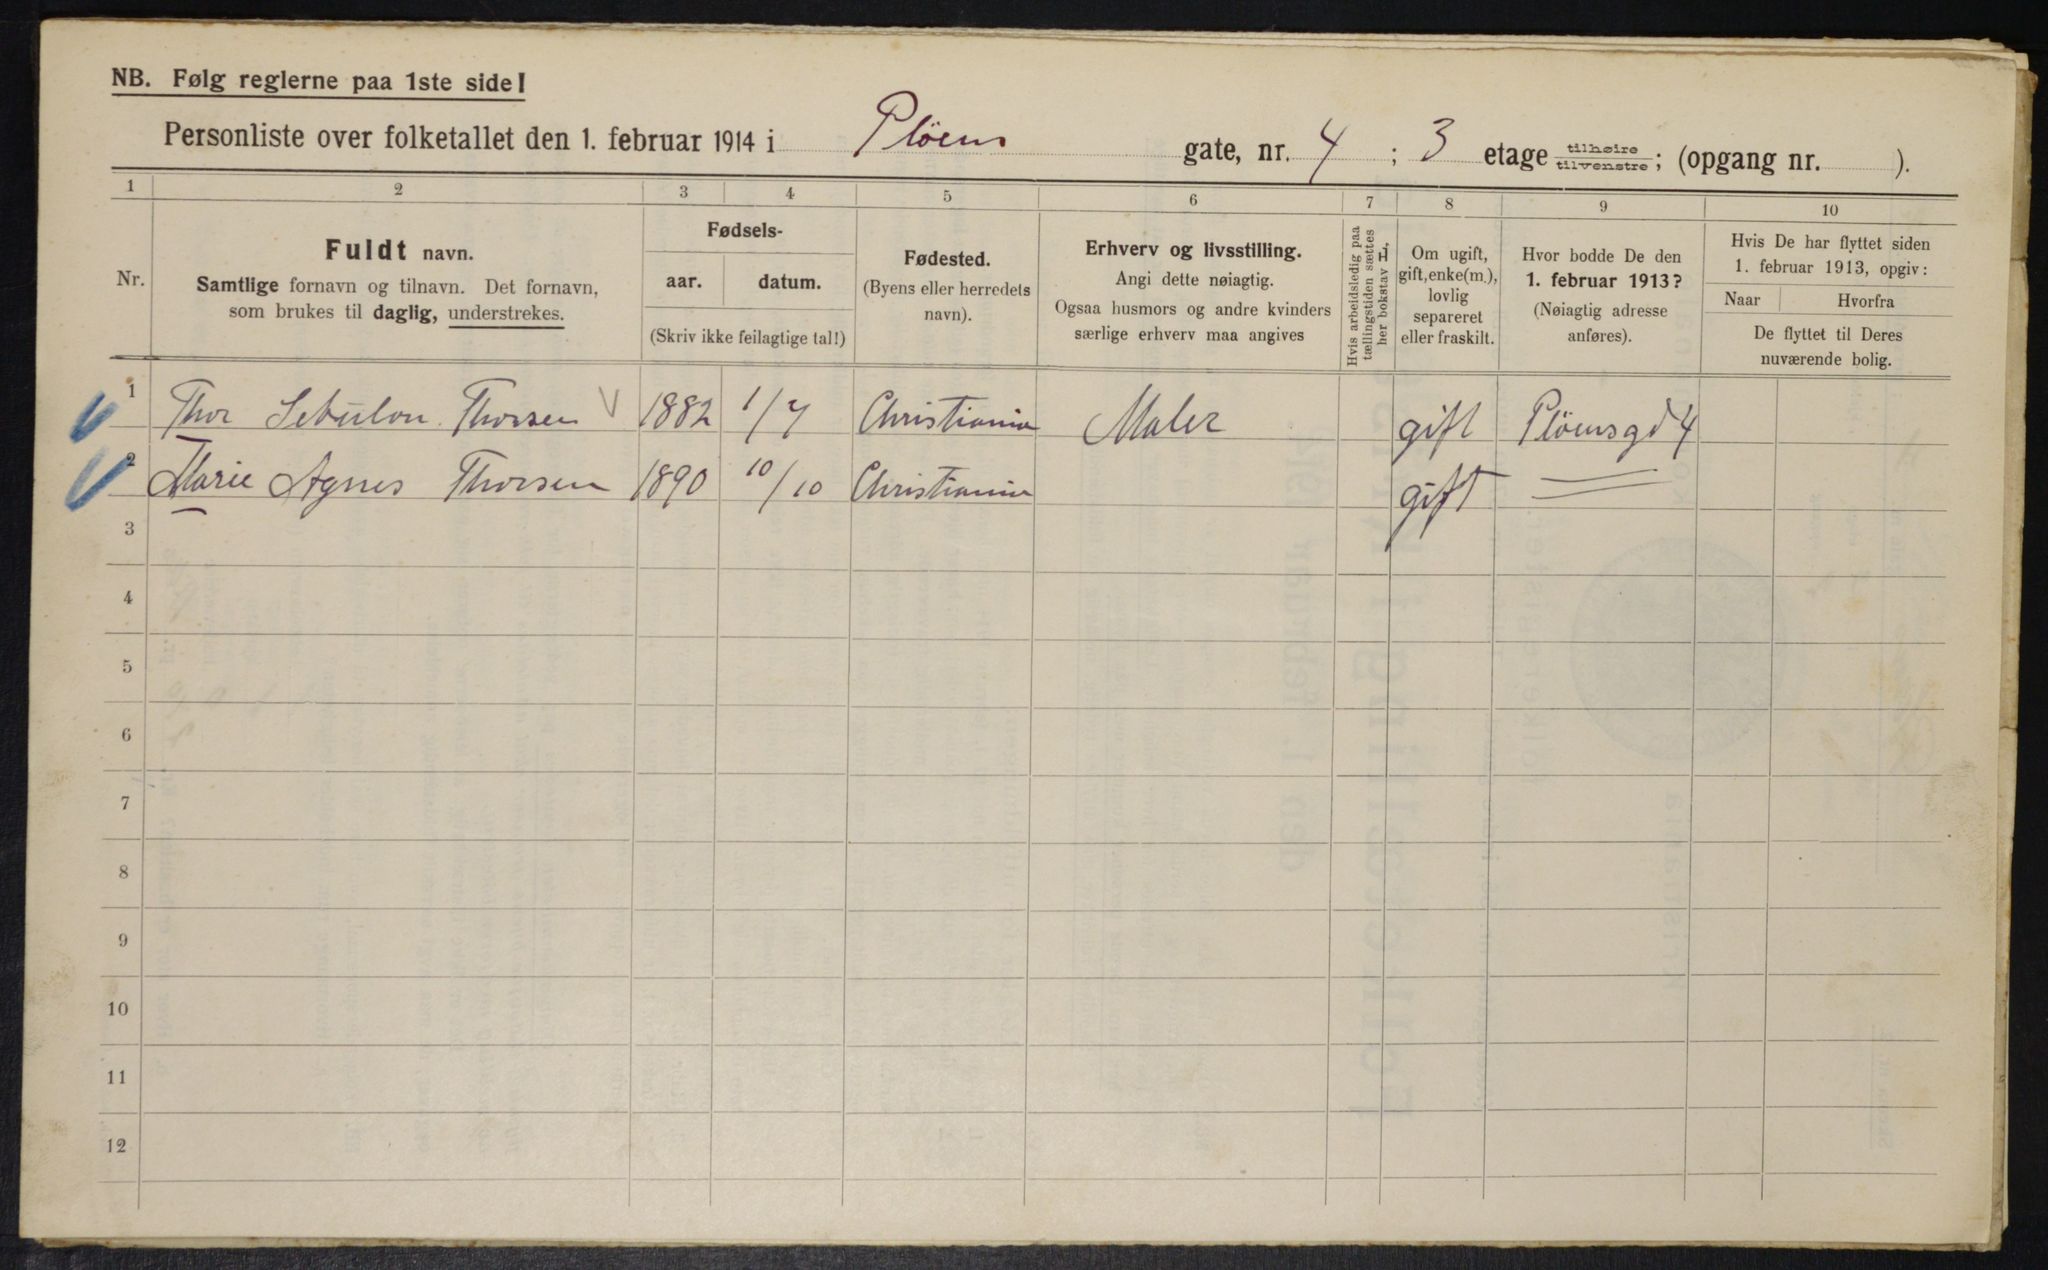 NB. Følg reglerne paa 1ste side!
Personliste over folketallet den 1. februar 1914 i Plöens gate, nr. 4 ; 3 etage tilhøire tilvenstre; (opgang nr. ).
1 2 3 4 5 6 7 8 9 10
Nr.
Fuldt navn.
Samtlige fornavn og tilnavn. Det fornavn,
som brukes til daglig, understrekes.
Fødsels-
aar. datum.
(Skriv ikke feilagtige tal!)
Fødested.
(Byens eller herredets
navn).
Erhverv og livsstilling.
Angi dette nøiagtig.
Ogsaa husmors og andre kvinders
særlige erhverv maa angives
Hvis arbeidsledig paa
tællingstiden sættes
her bokstav L.
Om ugift,
gift, enke(m.),
lovlig
separeret
eller fraskilt.
Hvor bodde De den
1. februar 1913?
(Nøiagtig adresse
anføres).
Hvis De har flyttet siden
1. februar 1913, opgiv:
Naar Hvorfra
De flyttet til Deres
nuværende bolig.
1 Thor Sebulon Thorsen 1882 1/7 Christiania Maler gift Plöensgd 4
2 Marie Agnes Thorsen 1890 10/10 Christiania gift
3
4
5
6
7
8
9
10
11
12